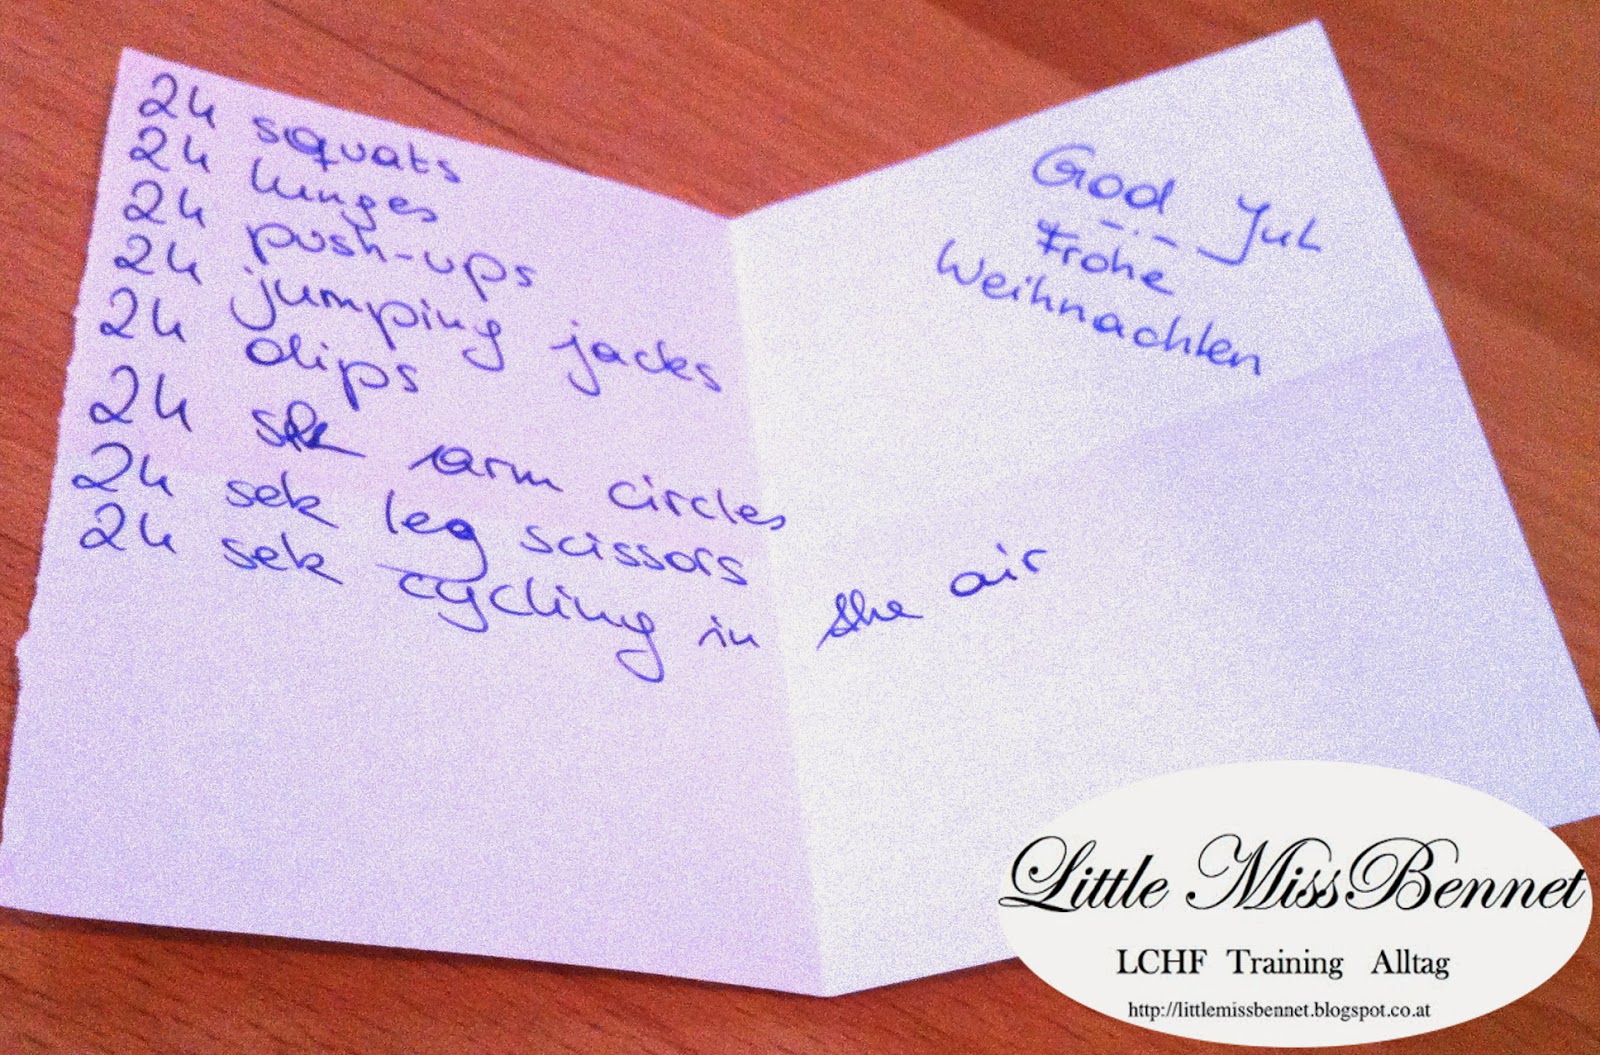 24 squats
24 lunges
24 push-ups
24 jumping jacks
24 dips
24 sek arm circles
24 sek leg scissors
24 sek cycling in the air
God Jul
Frohe
Weihnachten
Little Miss Bennet
LCHF Training Alltag
http://littlemissbennet.blogspot.co.at